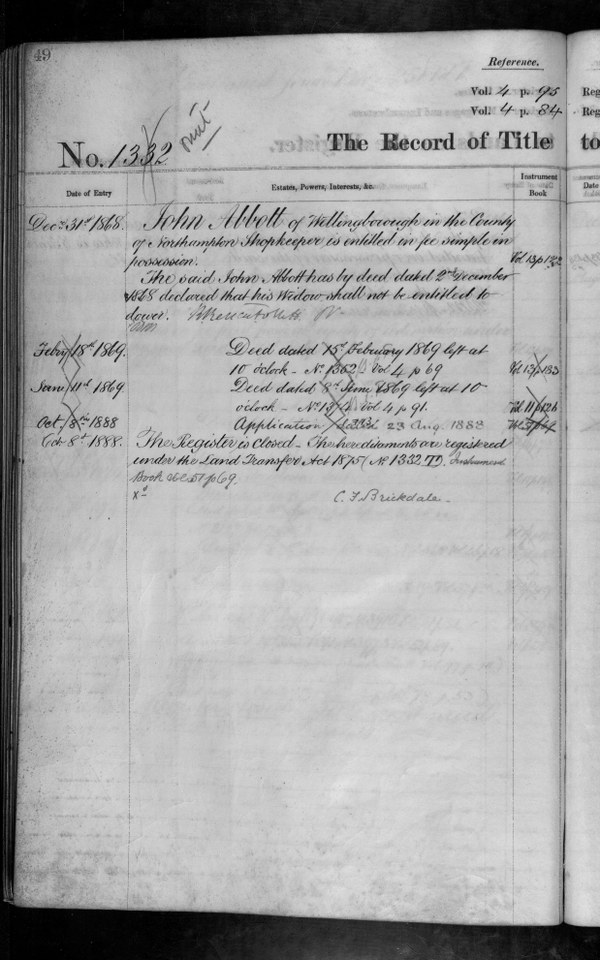 49
Reference.
Vol. 4 p. 95
Vol. 4 p. 84
No. 1332
omit
The Record of Title
Date of Entry
Estates, Powers, Interests, &c.
Instrument Book
Decr 31st 1868. John Abbott of Wellingborough in the County
of Northampton Shopkeeper is entitled in fee simple in
possession. Vol 13 p 132
The said John Abbott has by deed dated 2nd December
1868 declared that his Widow shall not be entitled to
dower.
Feby 18th 1869. Deed dated 15th February 1869 left at
10 o'clock – No 1362 Vol 4 p 69 Vol 13 p 133
June 11th 1869 Deed dated 8th June 1869 left at 10
o'clock – No Vol 4 p 91. Vol 11 p 126
Oct 8th 1888 Application dated 23 Aug. 1888
Oct 8th 1888. The Register is closed – The hereditaments are registered
under the Land Transfer Act 1875 (No 1332 ). Instrument
Book p 69.
C. F. Brickdale
Reg
Reg
to
Date